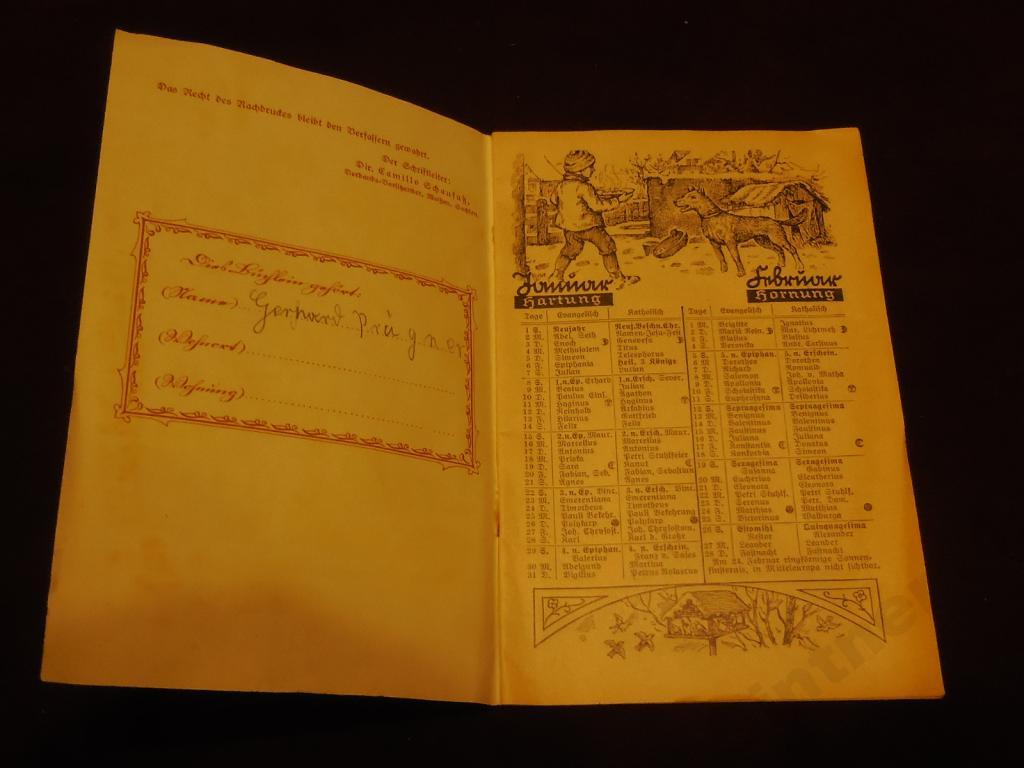 Das Recht des Nachdruckes bleibt den Verfassern gewahrt.
Der Schriftleiter:
Dir. Camillo Schaufuß,
Verbands-Vorsitzender, Meißen, Sachsen
Dies Büchlein gehört:
(Name) Gerhard Prügner
(Wohnort)
(Wohnung)
Januar Februar
Hartung Hornung
Tage Evangelisch Katholisch
1 S. Neujahr Neuj. Beschn. Chr.
2 M. Abel, Seth Namen-Jesu-Fest
3 D. Enoch Genovefa
4 M. Methusalem Titus
5 D. Simeon Telesphorus
6 F. Epiphania Heil. 3 Könige
7 S. Julian Lucian
8 S. 1. n. Ep. Erhard 1. n. Ersch. Sever.
9 M. Beatus Julian
10 D. Paulus Eins. Agathon
11 M. Hyginus Hyginus
12 D. Reinhold Arkadius
13 F. Hilarius Gottfried
14 S. Felix Felix
15 S. 2. n. Ep. Maur. 2. n. Ersch. Maur.
16 M. Marcellus Marcellus
17 D. Antonius Antonius
18 M. Priska Petri Stuhlfeier
19 D. Sara Kanut
20 F. Fabian, Seb. Fabian, Sebastian
21 S. Agnes Agnes
22 S. 3. n. Ep. Vinc. 3. n. Ersch. Vinc.
23 M. Emerentiana Emerentiana
24 D. Timotheus Timotheus
25 M. Pauli Bekehr. Pauli Bekehrung
26 D. Polykarp Polykarp
27 F. Joh. Chrysost. Joh. Chrysostom.
28 S. Karl Karl d. Große
29 S. 4. n. Epiphan. 4. n. Erschein.
Valerius Franz v. Sales
30 M. Adelgund Martina
31 D. Vigilius Petrus Nolascus
Tage Evangelisch Katholisch
1 M. Brigitte Ignatius
2 D. Mariä Rein. Mar. Lichtmeß
3 F. Blasius Blasius
4 S. Veronika Andr. Corsinus
5 S. 5. n. Epiphan. 5. n. Erschein.
6 M. Dorothea Dorothea
7 D. Richard Romuald
8 M. Salomon Joh. v. Matha
9 D. Apollonia Apollonia
10 F. Scholastika Scholastika
11 S. Euphrosyna Desiderius
12 S. Septuagesima Septuagesima
13 M. Benignus Benignus
14 D. Valentinus Valentinus
15 M. Faustinus Faustinus
16 D. Juliana Juliana
17 F. Konstantia Donatus
18 S. Konkordia Simeon
19 S. Sexagesima Sexagesima
Susanna Gabinus
20 M. Eucherius Eleutherius
21 D. Eleonora Eleonora
22 M. Petri Stuhlf. Petri Stuhlf.
23 D. Serenus Petr. Dam.
24 F. Matthias Matthias
25 S. Victorinus Walburga
26 S. Estomihi Quinquagesima
Nestor Alexander
27 M. Leander Leander
28 D. Fastnacht Fastnacht
Am 24. Februar ringförmige Sonnen-
finsternis, in Mitteleuropa nicht sichtbar.